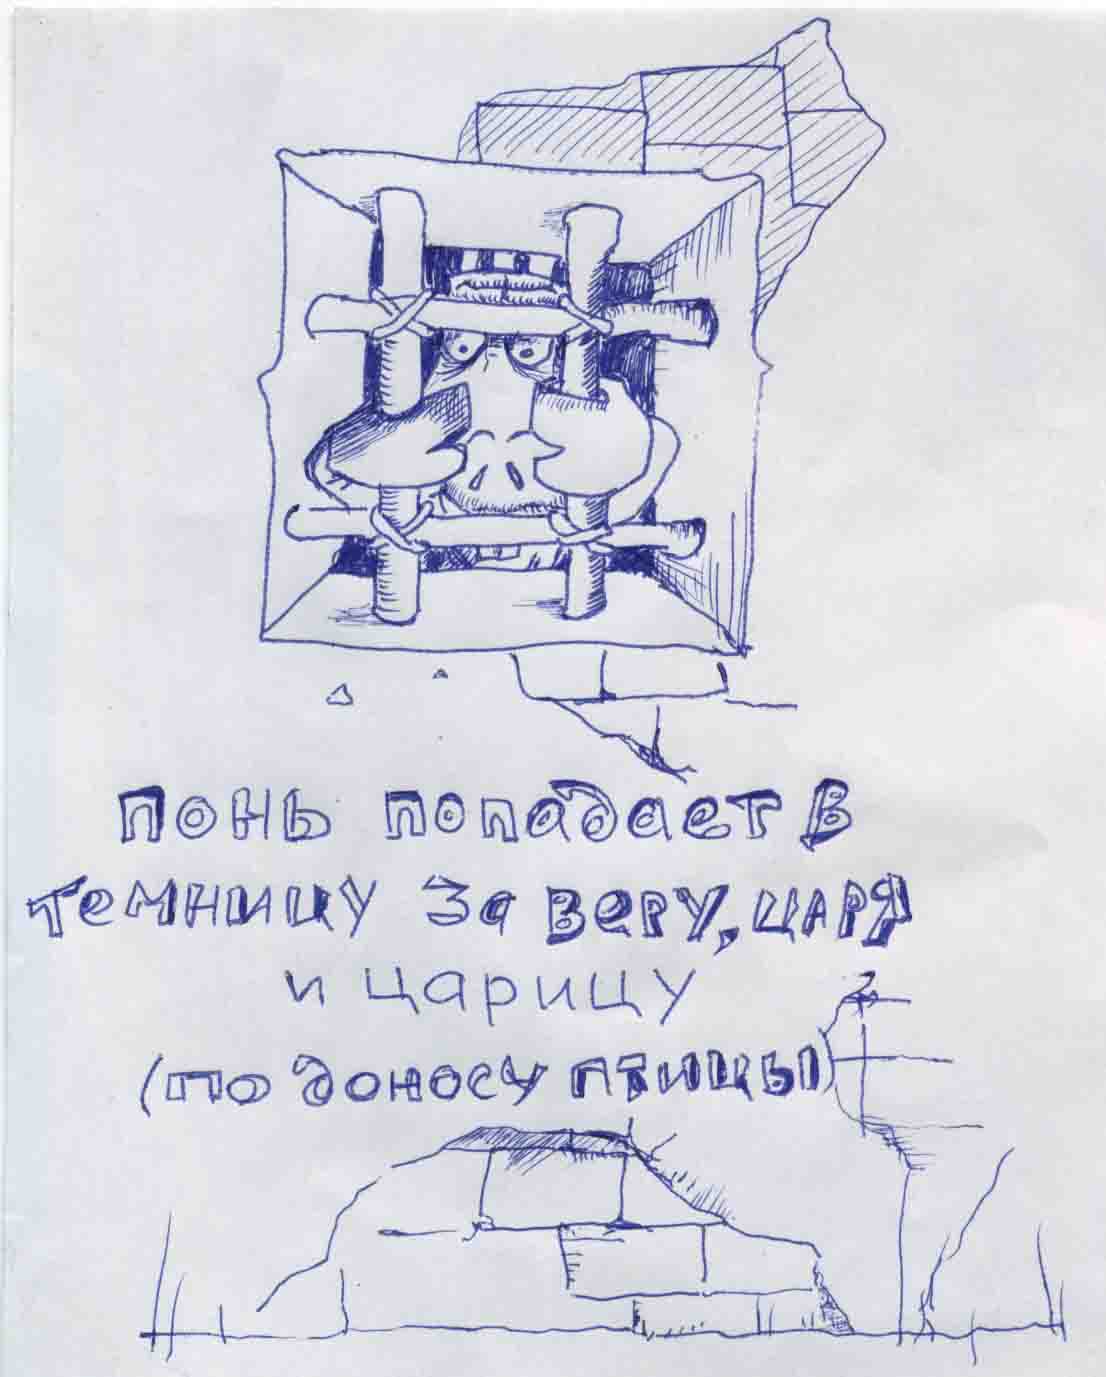 понь попадает в
темницу за веру, царя
и царицу
(по доносу птицы)